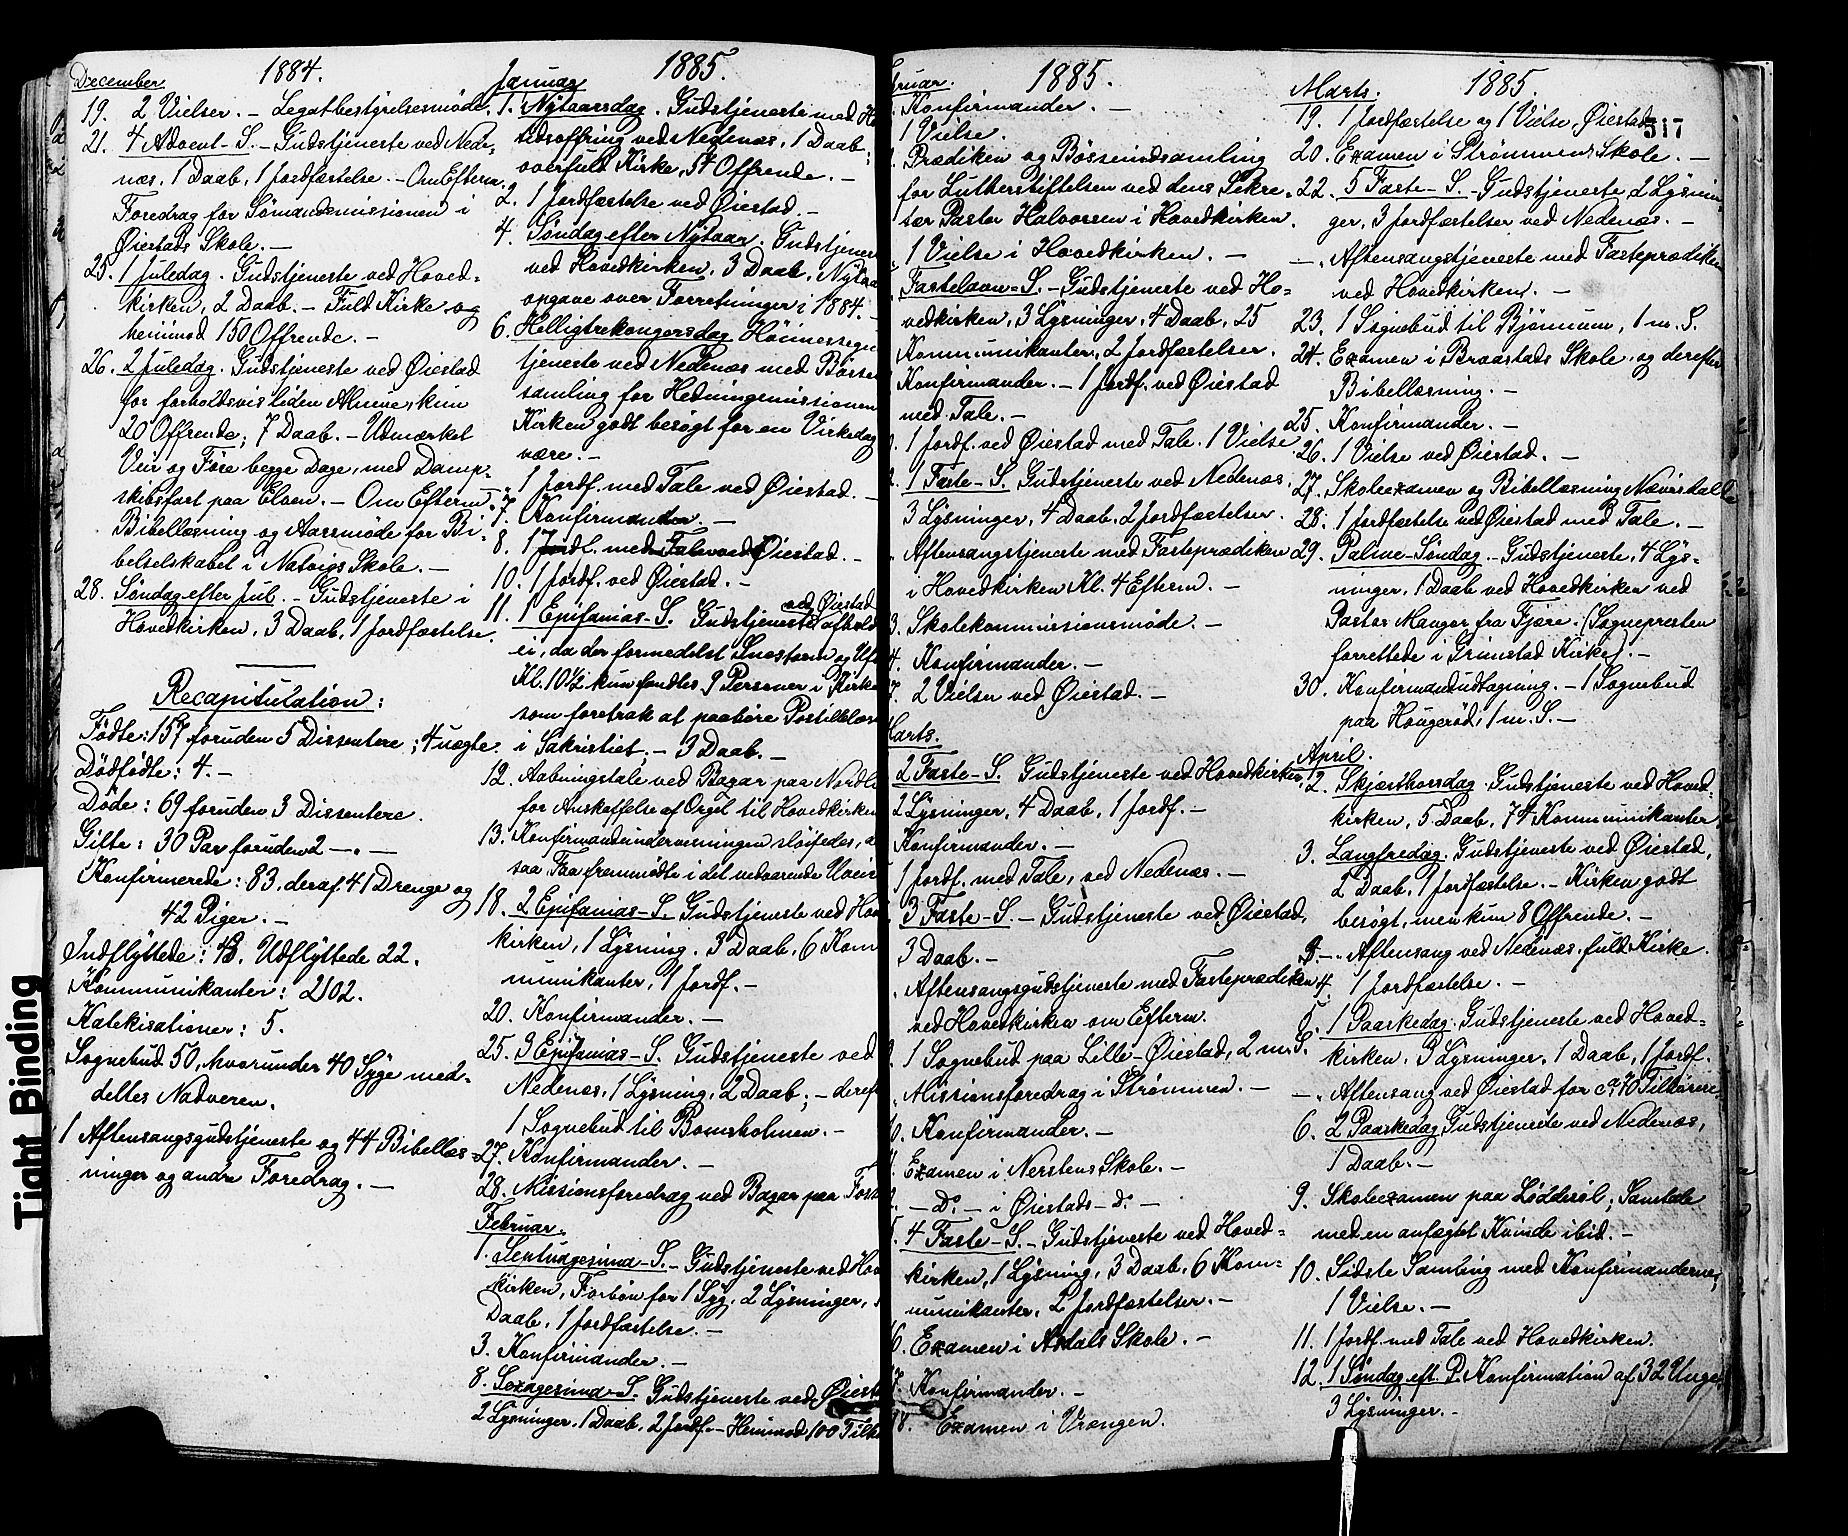 1884.
December.
19. 2 Vielser. - Legatbestyrelsesmøde.
21. 4 Advent-S. - Gudstjeneste ved Nede-
næs, 1 Daab, 1 Jordfæstelse. - Om Efterm.
Foredrag for Sømandsmissionen i
Øiestads Skole. -
25. 1 Juledag. Gudstjeneste ved Hoved-
kirken, 2 Daab. - Fuld Kirke og
henimod 150 Offrende. -
26. 2 Juledag. Gudstjeneste ved Øiestad
for forholdsvis liden Almue, kun
20 Offrende; 7 Daab. - Udmærket
Veir og Føre begge Dage, med Damp-
skibsfart paa Elven. - Om Efterm.
Bibellæsning og Aarsmøde for Bi-
belselskabet i Natvigs Skole. -
28. Søndag efter Jul. - Gudstjeneste i
Hovedkirken, 3 Daab, 1 Jordfæstelse.
Recapitulation:
Fødte: 157 foruden 5 Dissentere; 4 uægte.
Dødfødte: 4. -
Døde: 69 foruden 3 Dissentere.
Gifte: 30 Par foruden 2 -„-
Konfirmerede: 83, deraf 41 Drenge og
42 Piger. -
Indflyttede: 43. Udflyttede 22.
Kommunikanter: 2102.
Katekisationer: 5.
Sognebud 50, hvorunder 40 Syge med-
deltes Nadveren.
1 Aftensangsgudstjeneste og 44 Bibellæs-
ninger og andre Foredrag. -
1885.
Januar
1. Nytaarsdag. Gudstjeneste med Hø
tidsoffring ved Nedenæs, 1 Daab;
overfuld Kirke, 54 Offrende. -
2. 1 Jordfæstelse ved Øiestad. -
4. Søndag efter Nytaar. Gudstjenest
ved Hovedkirken, 3 Daab, Nytaa
opgave over Forretninger i 1884. -
6. Helligtrekongersdag Høimessegu
tjeneste ved Nedenæs med Bøsse
samling for Hedningemissionen
Kirken godt besøgt for en Virkedag
være. -
-„ 1 Jordf. med Tale ved Øiestad. -
7. Konfirmander. -
8. 1 Jordf. med Tale ved Øiestad. -
10. 1 Jordf. ved Øiestad. -
11. 1 Epifanias-S. Gudstjeneste ved Øiestad afhold
ei, da der formedelst Snestorm og Uf
Kl. 10½ kun fandtes 9 Personer i Kirke
som foretrak at paahøre Postillelæs
i Sakristiet. - 3 Daab. -
12. Aabningstale ved Bazar paa Nordl
for Anskaffelse af Orgel til Hovedkirken
13. Konfirmandundervisningen sløifedes, a
saa Faa fremmødte i det vedvarende Uveir
18. 2 Epifanias-S. Gudstjeneste ved Hov
kirken, 1 Lysning, 3 Daab, 6 Kom
munikanter, 1 Jordf. -
20. Konfirmander. -
25. 3 Epifanias-S. Gudstjeneste ved
Nedenæs, 1 Lysning, 2 Daab; - deref
1 Sognebud til Bomsholmen. -
27. Konfirmander. -
28. Missionsforedrag ved Bazar paa
Februar.
1. Septuagesima-S. - Gudstjeneste ved Hov
kirken, Forbøn for 1 Syg, 2 Lysninger,
Daab, 1 Jordfæstelse. -
3. Konfirmander. -
8. Sexagesima-S. Gudstjeneste ved Øiesta
2 Lysninger, 1 Daab, 2 Jordf. - Henimod 100 Tilh
1885.
ruar.
Konfirmander. -
1 Vielse.
Prædiken og Bøsseindsamling
for Lutherstiftelsen ved dens Sekre-
tær Pastor Halvorsen i Hovedkirken.
1 Vielse i Hovedkirken. -
Fastelavn-S. - Gudstjeneste ved Ho-
vedkirken, 3 Lysninger, 4 Daab, 25
Kommunikanter, 2 Jordfæstelser.
Konfirmander. - 1 Jordf. ved Øiestad
med Tale. -
1 Jordf. ved Øiestad med Tale. 1 Vielse
1 Faste-S. Gudstjeneste ved Nedenæs,
3 Lysninger, 4 Daab, 2 Jordfæstelser.
Aftensangstjeneste med Fasteprædiken
i Hovedkirken Kl. 4 Efterm. -
3. Skolekommissionsmøde. -
4. Konfirmander. -
7. 2 Vielser ved Øiestad. -
Marts.
2 Faste-S. Gudstjeneste ved Hovedkirken,
2 Lysninger, 4 Daab, 1 Jordf. -
Konfirmander. -
1 Jordf. med Tale, ved Nedenæs. -
3 Faste-S. - Gudstjeneste ved Øiestad,
3 Daab. -
Aftensangsgudstjeneste med Fasteprædiken
ved Hovedkirken om Efterm.
1 Sognebud paa Lille-Øiestad, 2 m. S.
Missionsforedrag i Strømmen. -
0. Konfirmander. -
Examen i Nerstens Skole. -
- Do - i Øiestads - Do -
5. 4 Faste-S. - Gudstjeneste ved Hoved-
kirken, 1 Lysning, 3 Daab, 6 Kom-
munikanter, 2 Jordfæstelser. -
6. Examen i Skole. -
7. Konfirmander. -
18. Examen i Vrængen.
1885.
517
Marts.
19. 1 Jordfæstelse og 1 Vielse, Øiestad
20. Examen i Strømmens Skole. -
22. 5 Faste-S. - Gudstjeneste, 2 Lysnin-
ger, 3 Jordfæstelser ved Nedenæs. -
-„ Aftensangstjeneste med Fasteprædiken
ved Hovedkirken. -
23. 1 Sognebud til Bjørnum, 1 m. S.
24. Examen i Braastads Skole og derefter
Bibellæsning. -
25. Konfirmander. -
26. 1 Vielse ved Øiestad. -
27. Skoleexamen og Bibellæsning Næversdalle
28. 1 Jordfæstelse ved Øiestad med Tale. -
29. Palme-Søndag. - Gudstjeneste, 4 Lys-
ninger, 1 Daab ved Hovedkirken ved
Pastor Mangor fra Fjære. (Sognepresten
forrettede i Grimstad Kirke). -
30. Konfirmandudtagning. - 1 Sognebud
paa Hougerød, 1 m. S. -
April.
2. Skjærthorsdag Gudstjeneste ved Hoved-
kirken, 5 Daab, 74 Kommunikanter
3. Langfredag. Gudstjeneste ved Øiestad,
2 Daab, 1 Jordfæstelse. - Kirken godt
besøgt, men kun 8 Offrende. -
-„ Aftensang ved Nedenæs, fuld Kirke.
4. 1 Jordfæstelse. -
5. 1 Paaskedag. Gudstjeneste ved Hoved-
kirken, 3 Lysninger, 1 Daab, 1 Jordf.
-„ Aftensang ved Øiestad for ca 70 Tilhørere
6. 2 Paaskedag. Gudstjeneste ved Nedenæs,
1 Daab. -
9. Skoleexamen paa Løddesøl; Samtale
med en anfægtet Kvinde ibid. -
10. Sidste Samling med Konfirmanderne,
1 Vielse. -
11. 1 Jordf. med Tale ved Hovedkirken.
12. 1 Søndag eft. P. Konfirmation af 32 Unge,
3 Lysninger. -
Tight Binding